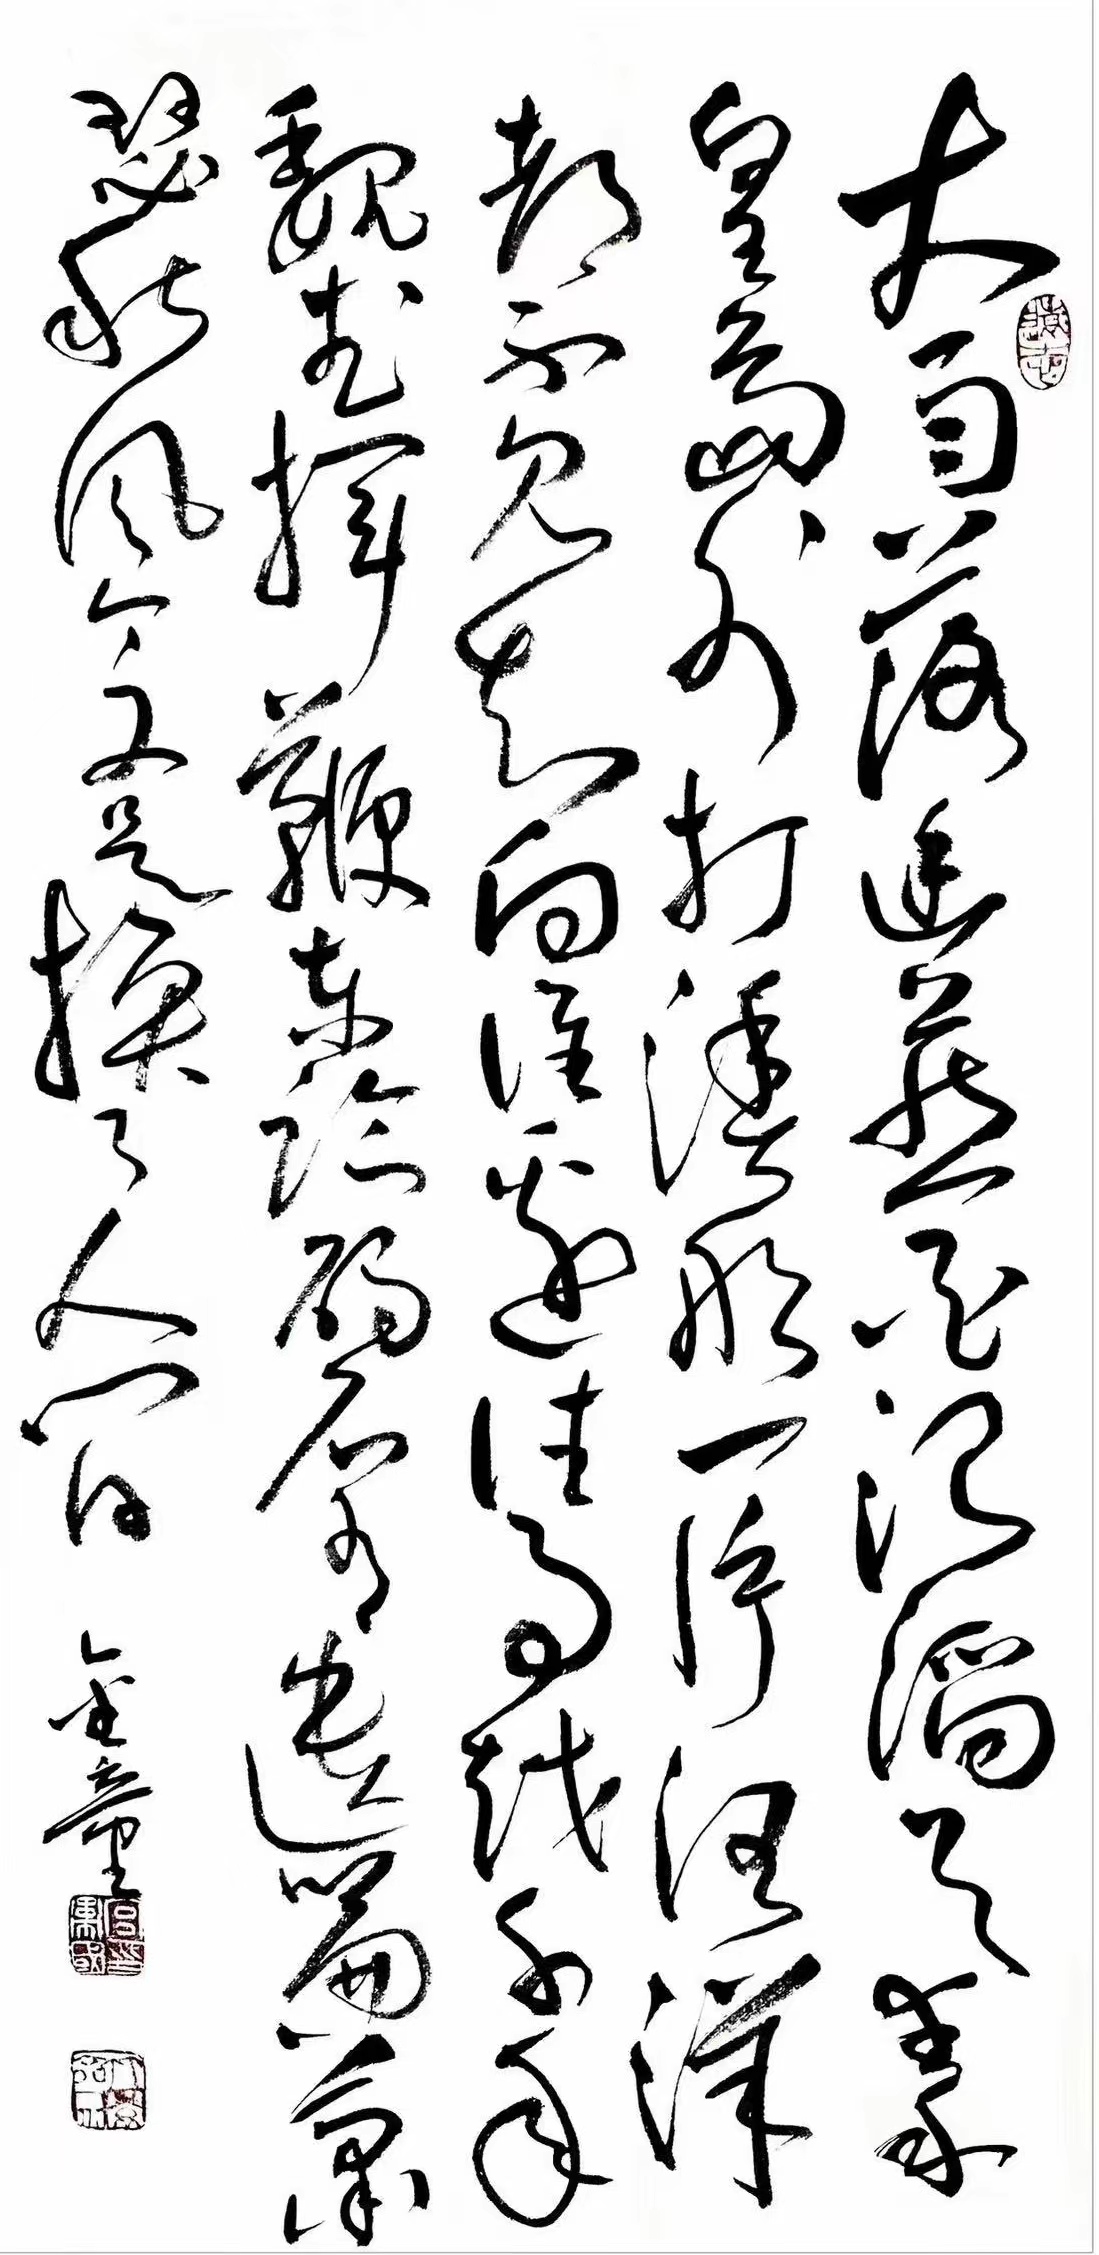 大雨落幽燕白浪滔天秦
皇岛外打渔船一片汪洋
都不见知向谁边往事越千年
魏武挥鞭东临碣石有遗篇萧
瑟秋风今又是换了人间
金童